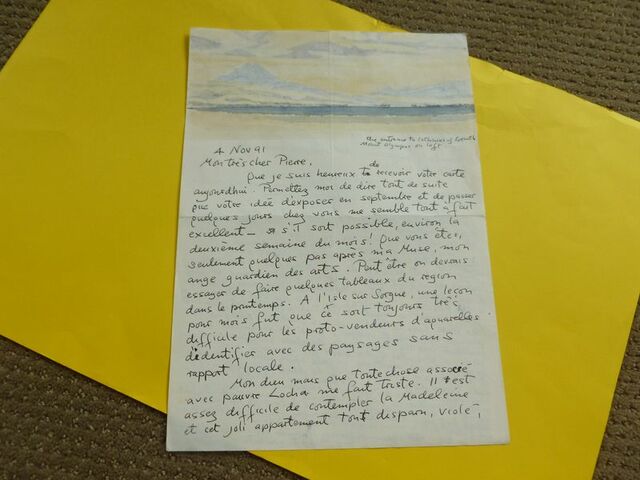 the entrance to isthmus of Corinth
Mount Olympus on left
4 Nov 91
Mon très cher Pierre,
Que je suis heureux de recevoir votre carte
aujourdhui. Permettez moi de dire tout de suite
que votre idée d'exposer en septembre et de passer
quelques jours chez vous me semble tout à fait
excellent — s'il soit possible, environ la
deuxième semaine du mois! Que vous êtes,
seulement quelques pas après ma Muse, mon
ange guardien des arts. Peut être on devrais
essayer de faire quelques tableaux du region
dans le printemps. A l'Isle sur Sorgue, une leçon
pour mois fut que ce soit toujours très
difficile pour les proto-vendeurs d'aquarelles
didentifier avec des paysages sans
rapport locale.
Mon dieu mais que toute chose associé
avec pauvre Locha me fait triste. Il est
assez difficile de contempler la Madeleine
et cet joli appartement tout disparu, violé,